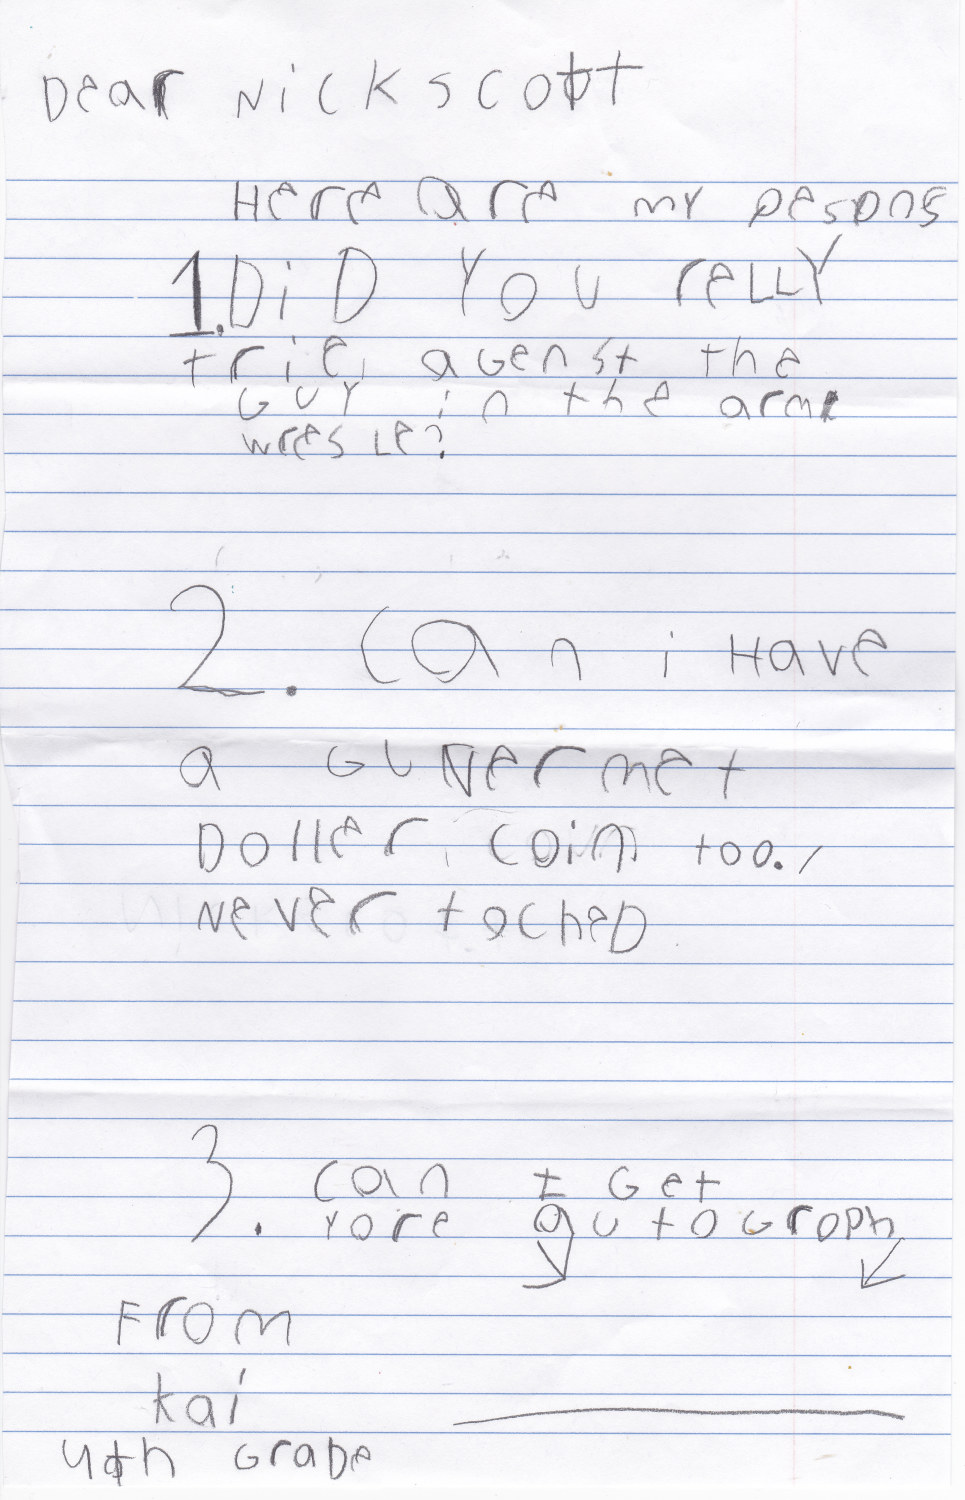 Dear Nick scott
Here are my pesons
1. DiD You reLLY
trie, agenst the
GUY in the arm
wresLe?
2. Can i Have
a GuNermet
Doller, coin too.,
Never toched
3. can I Get
Yore autograph
From
kai
4th GraDe